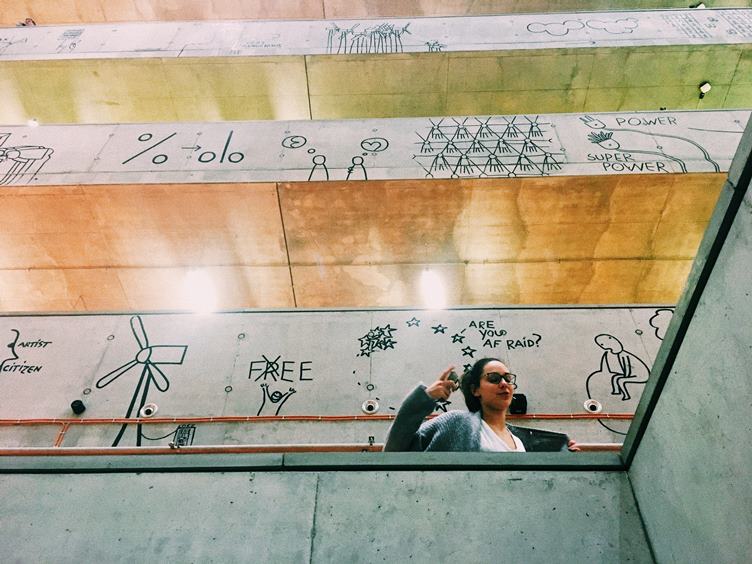 % → olo
POWER
SUPER
POWER
ARTIST
CITIZEN
FREE
ARE
YOU
AFRAID?